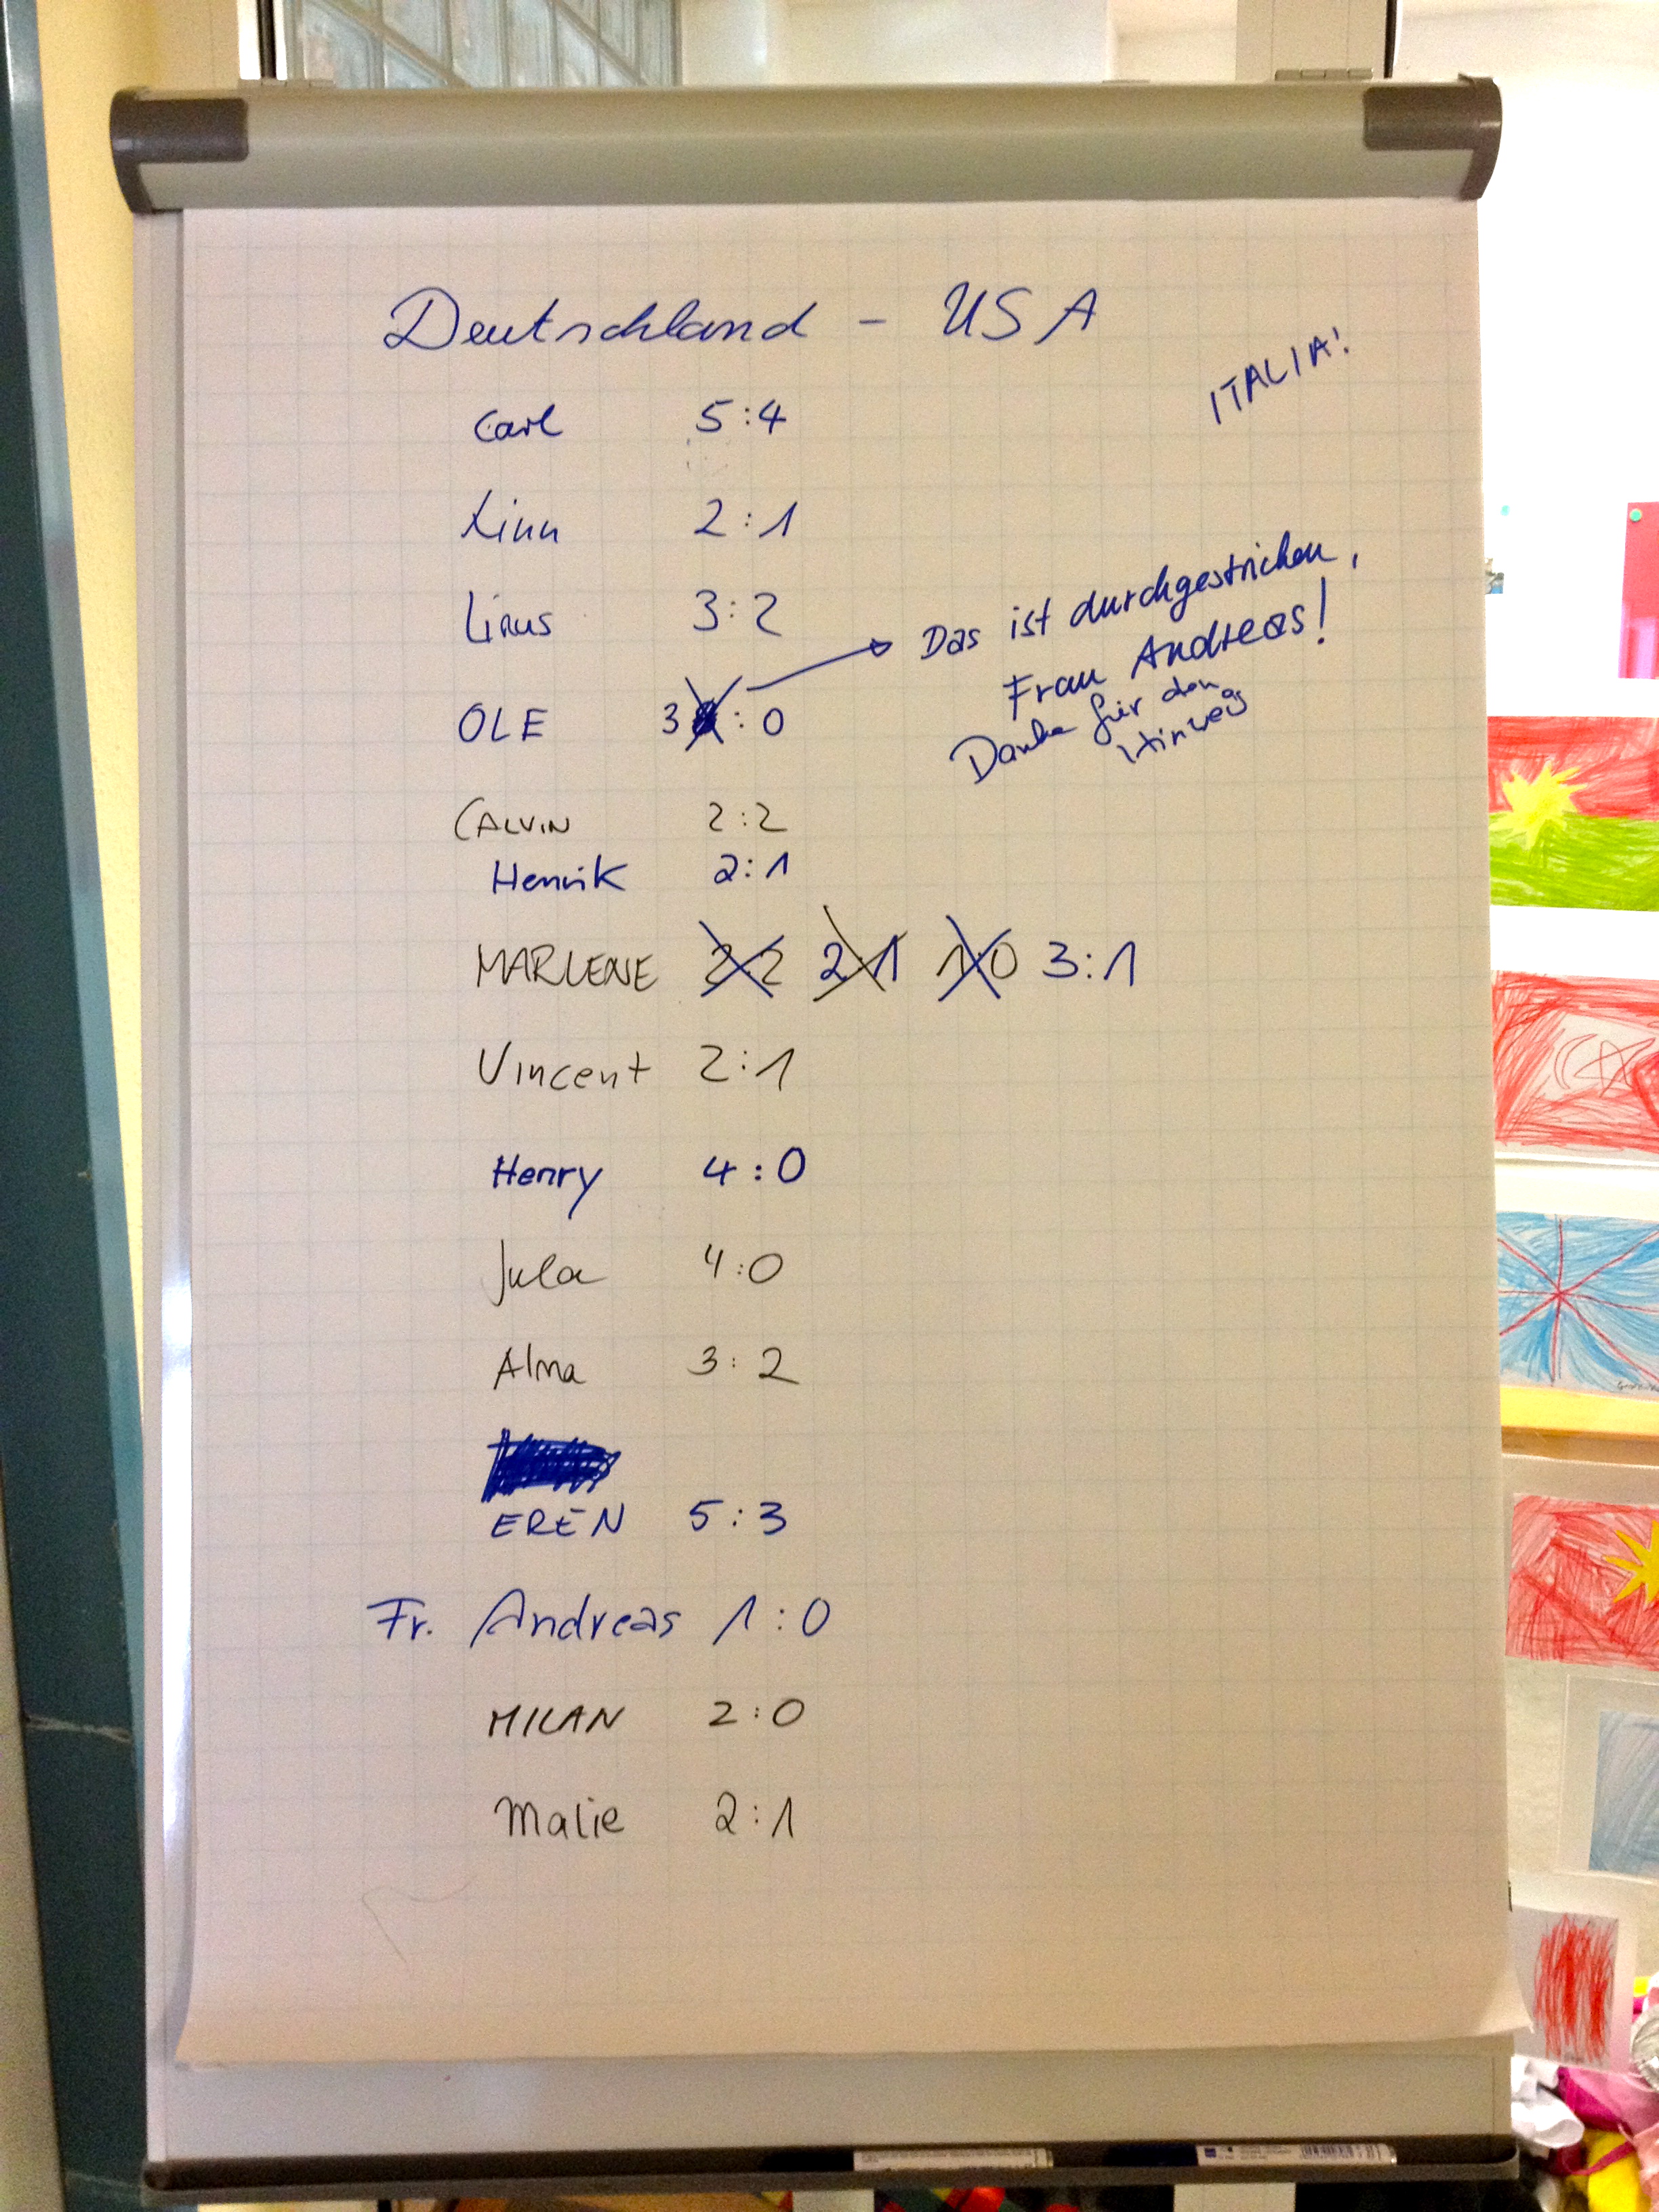 Deutschland - USA
ITALIA!
Carl 5:4
Linn 2:1
Linus 3:2
Das ist durchgestrichen,
Frau Andreas!
Danke für den
Hinweis
OLE 3 :0
CALVIN 2:2
Henrik 2:1
MARLENE 2:2 2:1 1:0 3:1
Vincent 2:1
Henry 4:0
Jula 4:0
Alma 3:2
EREN 5:3
Fr. Andreas 1:0
MILAN 2:0
Malie 2:1